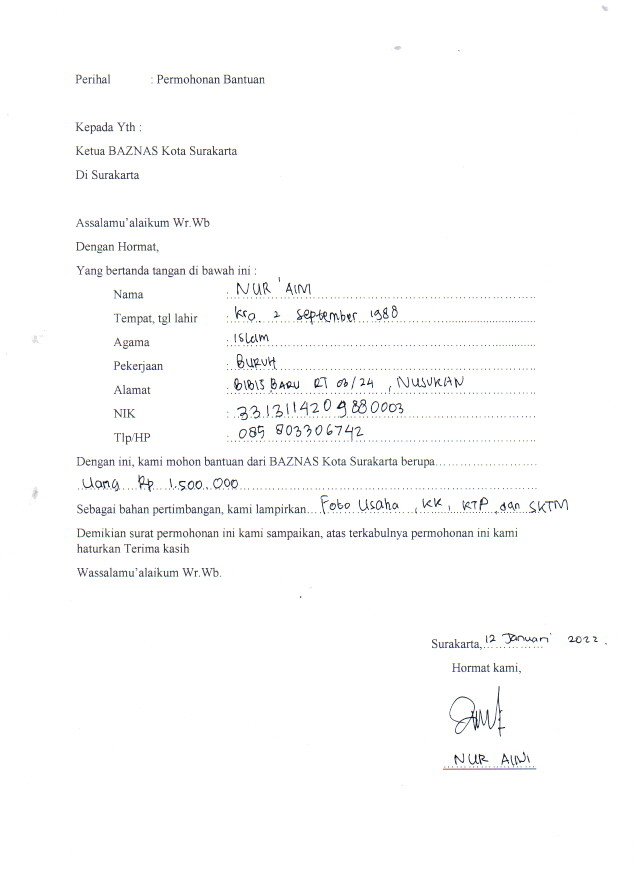 Perihal : Permohonan Bantuan
Kepada Yth :
Ketua BAZNAS Kota Surakarta
Di Surakarta
Assalamu'alaikum Wr.Wb
Dengan Hormat,
Yang bertanda tangan di bawah ini :
Nama : NUR 'AINI
Tempat, tgl lahir : Kra, 2 September 1988
Agama : Islam
Pekerjaan : BURUH
Alamat : BIBIS BARU RT 06/24, NUSUKAN
NIK : 3313114209880003
Tlp/HP : 085 803306742
Dengan ini, kami mohon bantuan dari BAZNAS Kota Surakarta berupa
Uang Rp 1.500.000
Sebagai bahan pertimbangan, kami lampirkan Foto Usaha, KK, KTP, dan SKTM
Demikian surat permohonan ini kami sampaikan, atas terkabulnya permohonan ini kami
haturkan Terima kasih
Wassalamu'alaikum Wr.Wb.
Surakarta, 12 Januari 2022.
Hormat kami,
NUR AINI